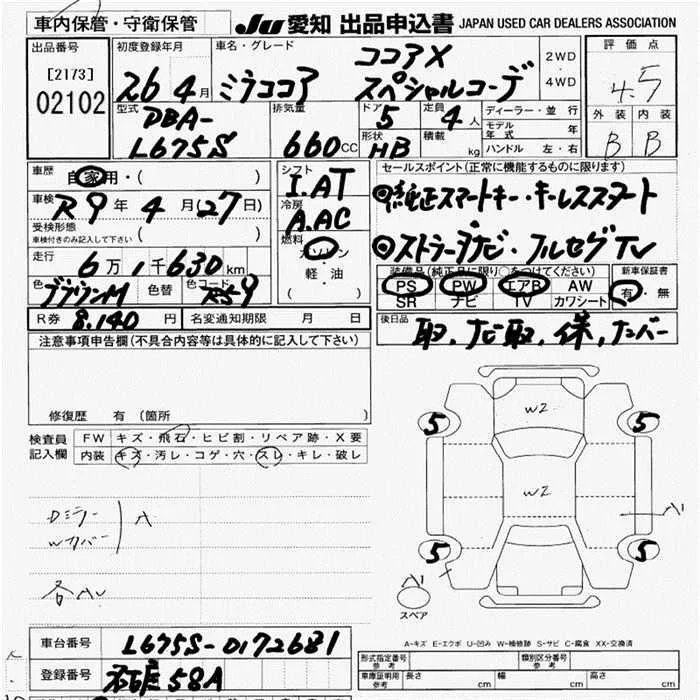 車内保管・守衛保管
JU 愛知 出品申込書 JAPAN USED CAR DEALERS ASSOCIATION
出品番号
[2173]
02102
初度登録年月
26 4 月
車名・グレード
ミラココア ココアX スペシャルコーデ
2WD
4WD
評価点
4.5
外装 内装
B B
型式
DBA-
L675S
排気量
660 CC
ドア
5
定員
4 人
形状
HB
積載
kg
ディーラー・並行
モデル年式 年
ハンドル 左・右
車歴
自家用・( )
車検
R9 年 4 月(27日)
受検形態
車検付きのみ記入して下さい ( )
走行
6 万 1 千 630 km
色
ブラウンM
色替
色コード
R59
R券
8.140 円
名変通知期限 月 日
シフト
I.AT
冷房
A.AC
燃料
ガソリン
・
軽・油
( )
セールスポイント(正常に機能するものに限ります)
◎純正スマートキー・キーレススタート
◎ストラーダナビ・フルセグTV
装備品(純正品に限り○をつけてください)
PS PW エアB AW
SR ナビ TV カワシート
新車保証書
有・無
後日品
取.ナビ取.保.ナンバー
注意事項申告欄(不具合内容等は具体的に記入して下さい)
修復歴 有(箇所 )
検査員記入欄
FW キズ・飛石・ヒビ割・リペア跡・X要
内装 キズ・汚レ・コゲ・穴・スレ・キレ・破レ
Dミラー
Wカバー
A
各
W2
W2
5
5
5
5
A1
A1
スペア
A-キズ E-エクボ U-凹み W-補修跡 S-サビ C-腐食 XX-交換済
車台番号
L675S-0172681
登録番号
58A
形式指定番号 参考
類別区分番号 参考
車庫証明用 参考
長さ cm
幅 cm
高さ cm